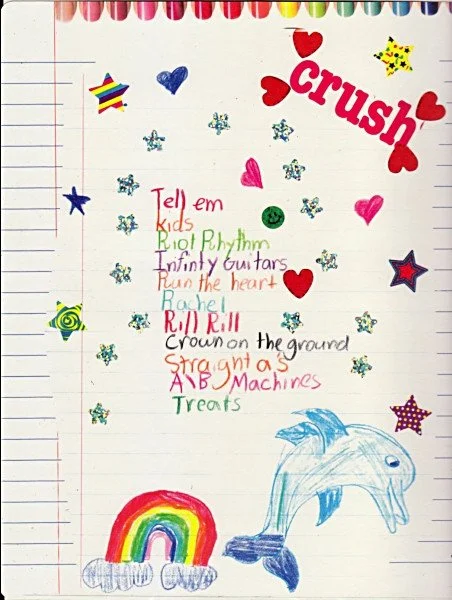 crush
Tell em
kids
Riot Rhythm
Infinty Guitars
Run the heart
Rachel
Rill Rill
Crown on the ground
Straight a's
A\B Machines
Treats